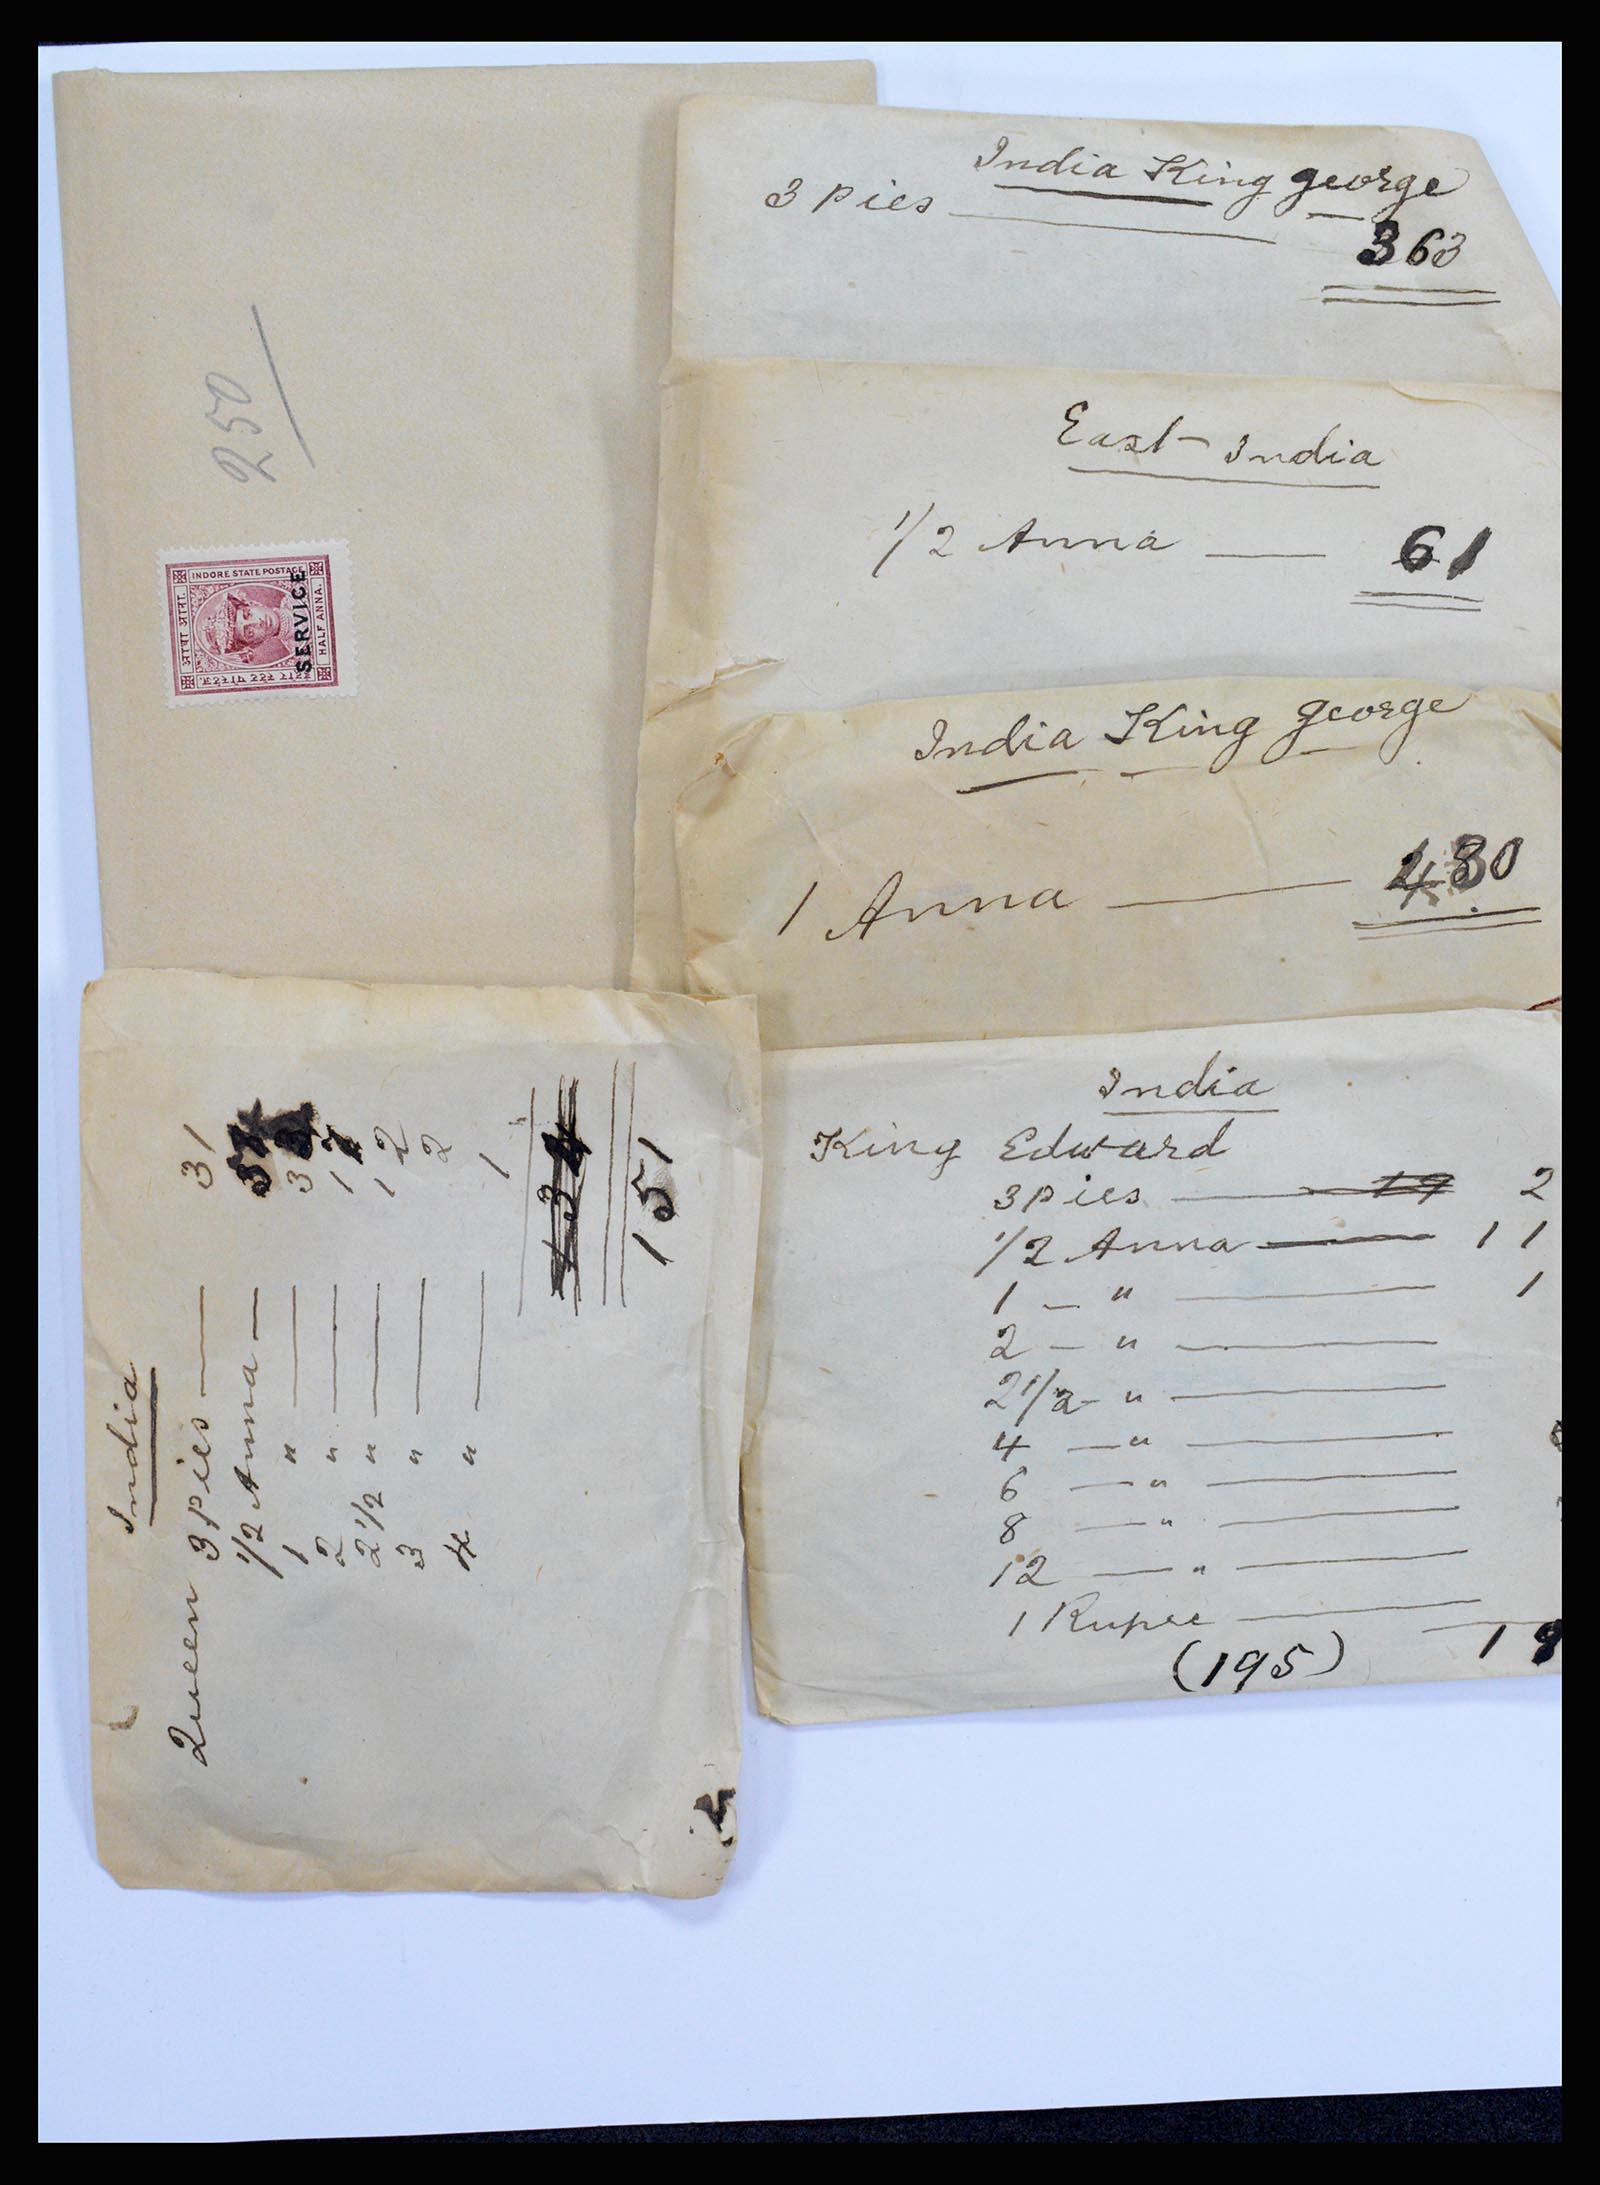 250
INDORE STATE POSTAGE.
आधा आना.
HALF ANNA.
SERVICE
India King george
3 Pies 363
East India
1/2 Anna 61
India King george
1 Anna
India
Queen 3 Pies 31
1/2 Anna
1 "
2 "
2 1/2 " 12
3 " 2
4 " 1
134
151
India
King Edward
3 pies 19 2
1/2 Anna 11
1 " 1
2 "
2 1/2 "
4 "
6 "
8 "
12 "
1 Rupee
(195)